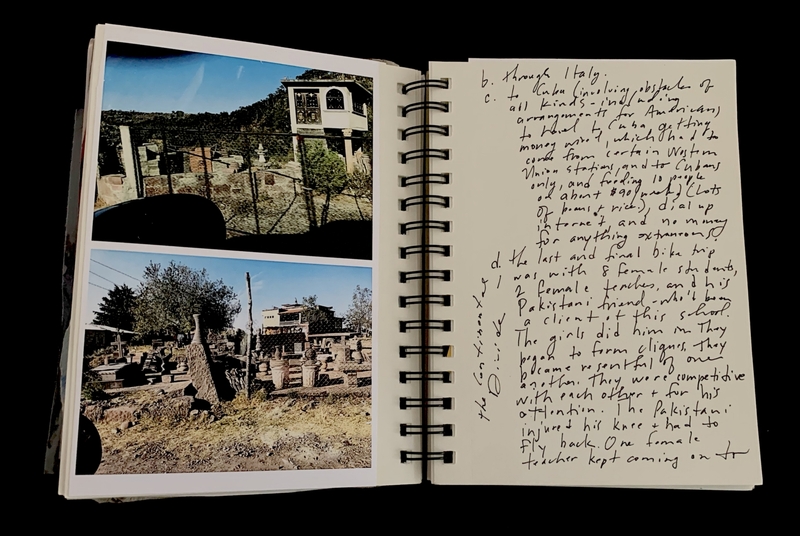 b. through Italy.
c. to Cuba (involving obstacles of
all kinds - including
arrangements for Americans
to travel to Cuba getting
money wired, which had to
come from certain Western
Union stations, and to Cubans
only, and feeding 10 people
on about $90/week) (Lots
of beans + rice.) dial up
internet and no money
for anything extraneous.
d. the last and final bike trip
was with 8 female students,
2 female teachers, and his
Pakistani friend - who'd been
a client at this school.
The girls did him in. They
began to form cliques. They
became resentful of one
another. They were competitive
with each other + for his
attention. The Pakistani
injured his knee + had to
fly back. One female
teacher kept coming on to
the Continental
Divide